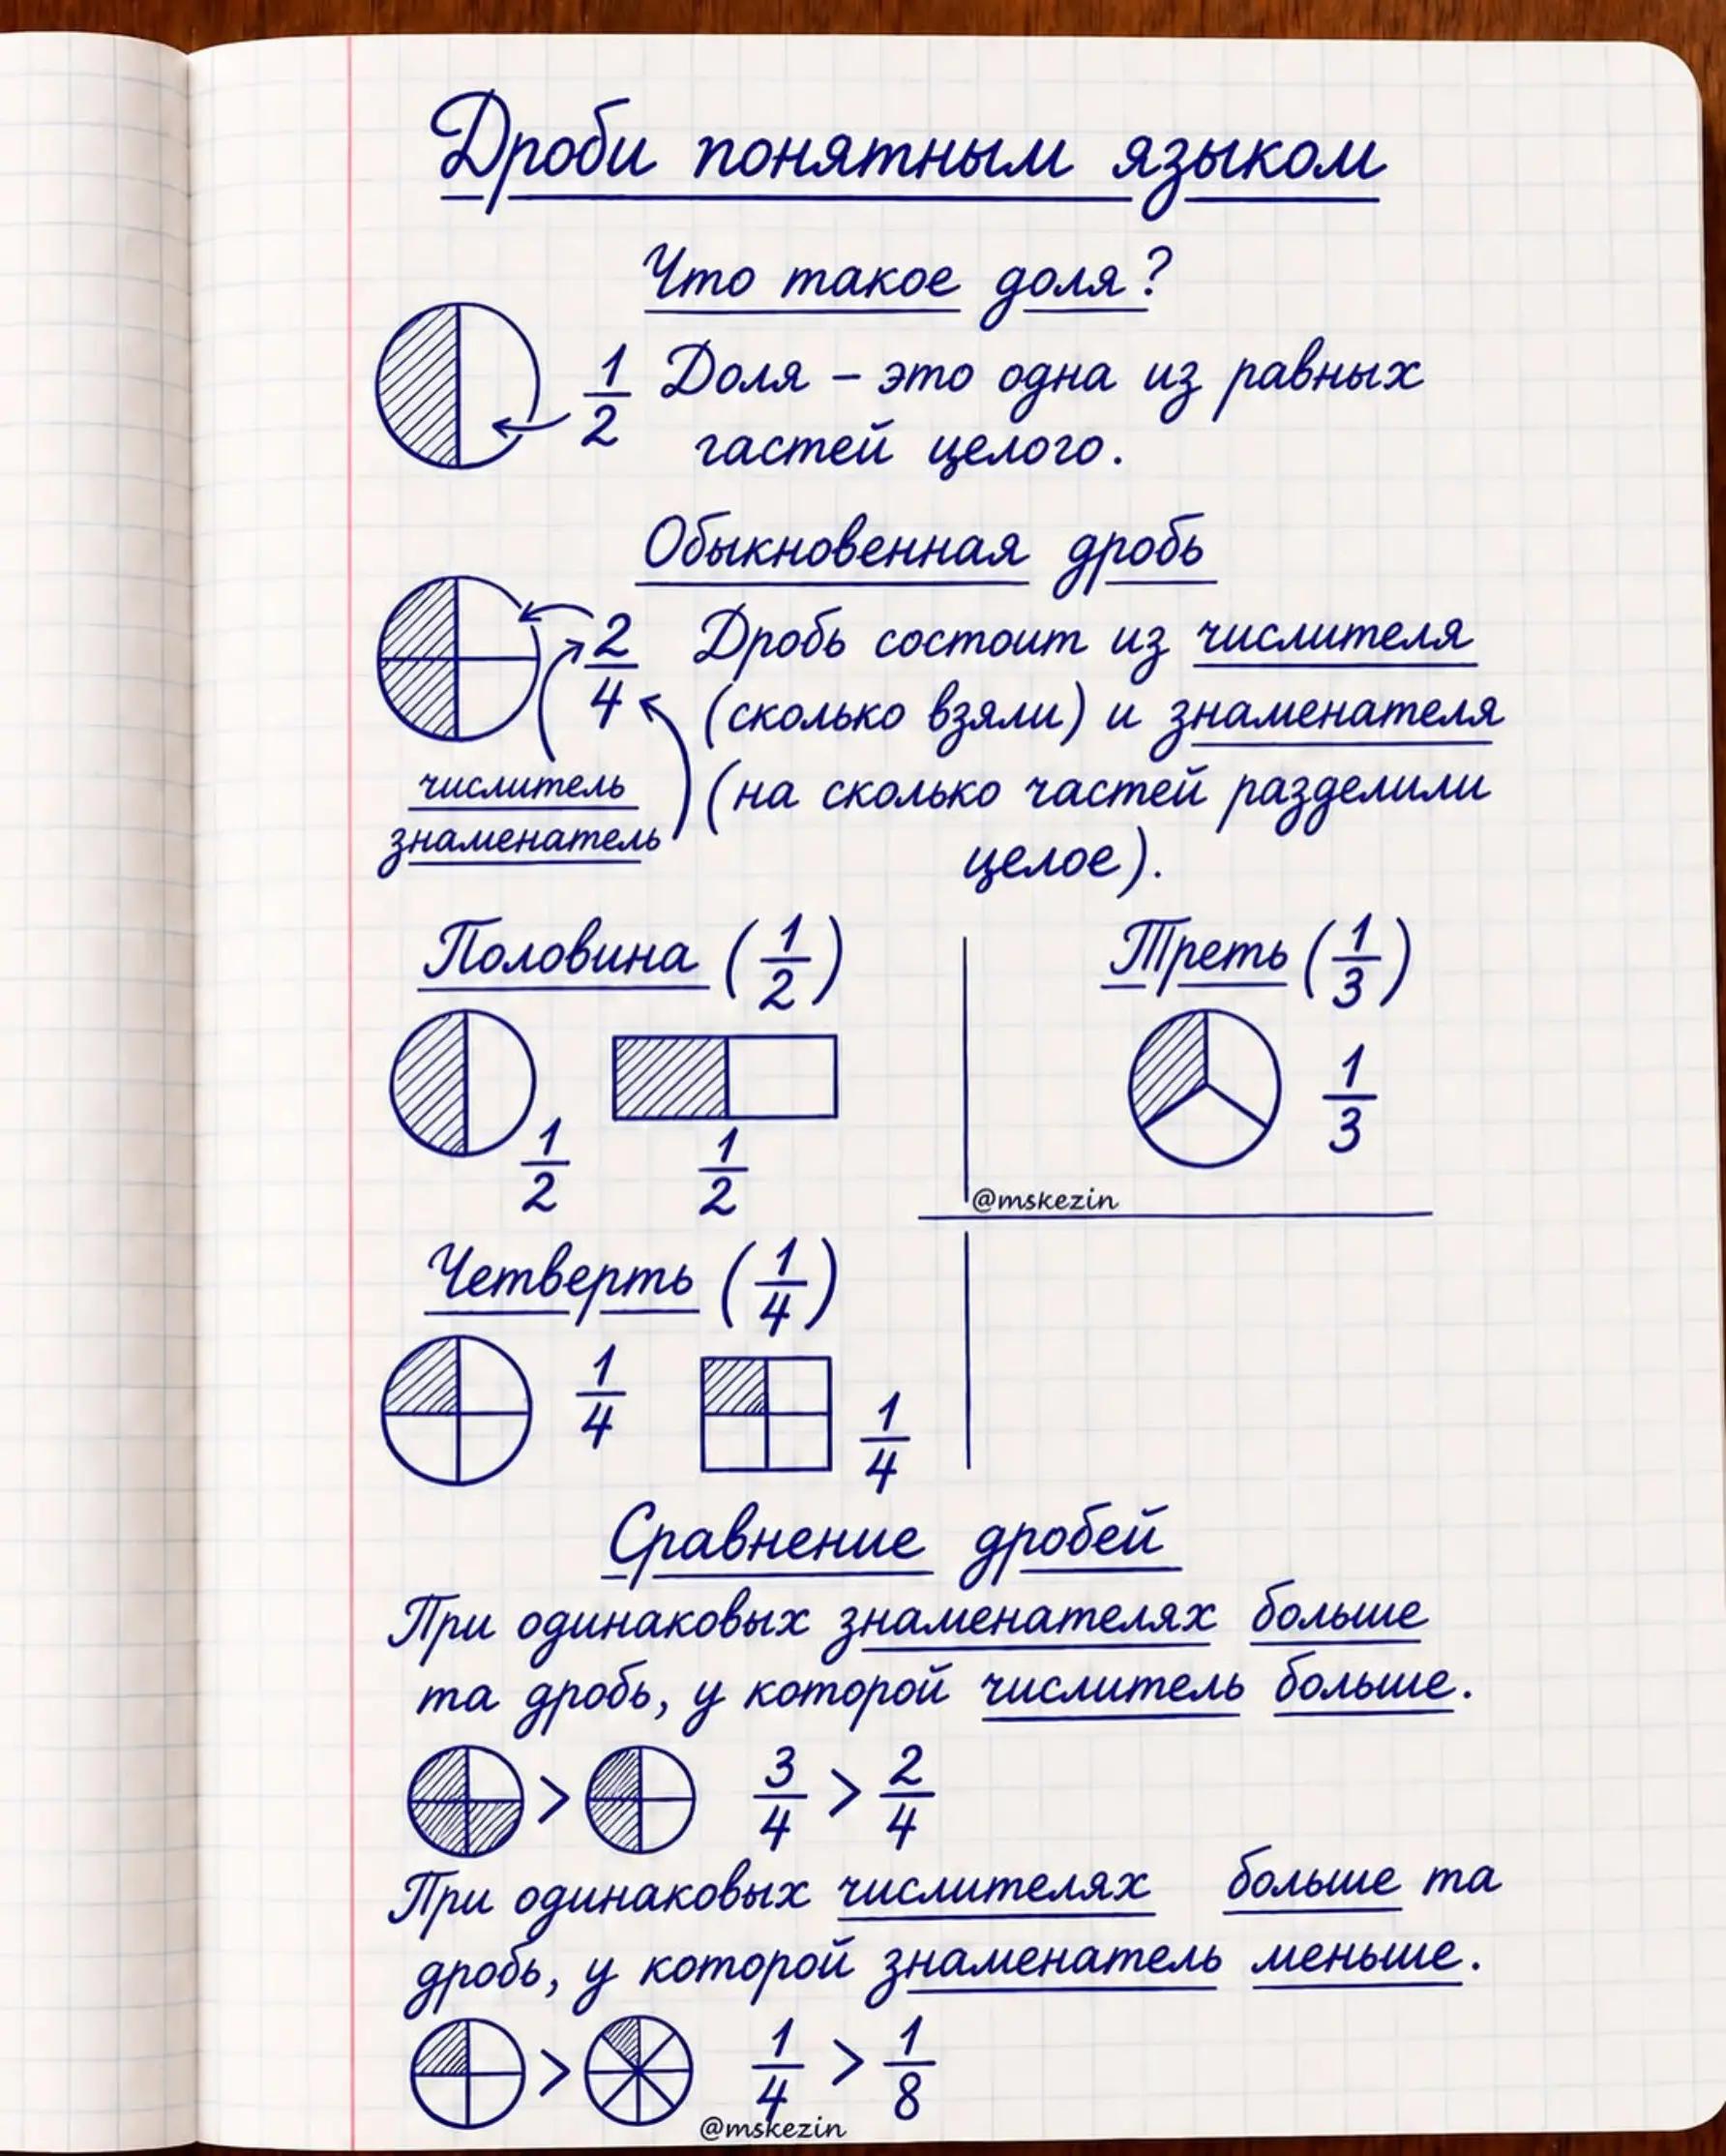 Дроби понятным языком
Что такое доля?
1/2 Доля – это одна из равных
частей целого.
Обыкновенная дробь
2/4 Дробь состоит из числителя
(сколько взяли) и знаменателя
(на сколько частей разделили
целое).
числитель
знаменатель
Половина (1/2)
1/2
1/2
Треть (1/3)
1/3
@mskezin
Четверть (1/4)
1/4
1/4
Сравнение дробей
При одинаковых знаменателях больше
та дробь, у которой числитель больше.
> 3/4 > 2/4
При одинаковых числителях больше та
дробь, у которой знаменатель меньше.
> 1/4 > 1/8
@mskezin